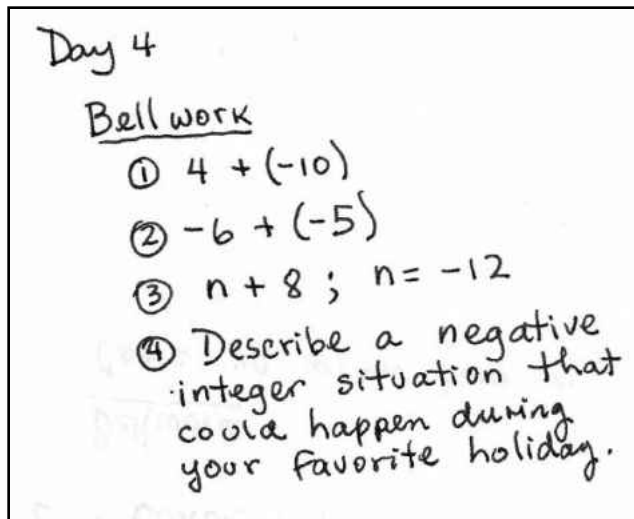 Day 4
Bell work
① 4 + (-10)
② -6 + (-5)
③ n + 8 ; n = -12
④ Describe a negative
integer situation that
could happen during
your favorite holiday.